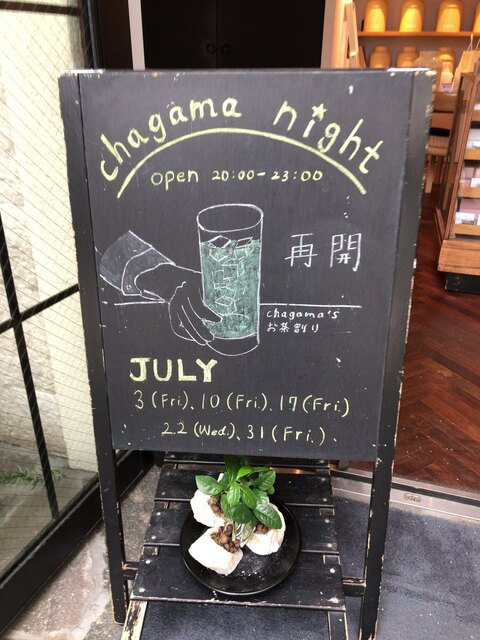 chagama night
open 20:00-23:00
再開
chagama's
お茶割り
JULY
3 (Fri.), 10 (Fri.), 17 (Fri)
22 (Wed.), 31 (Fri.).